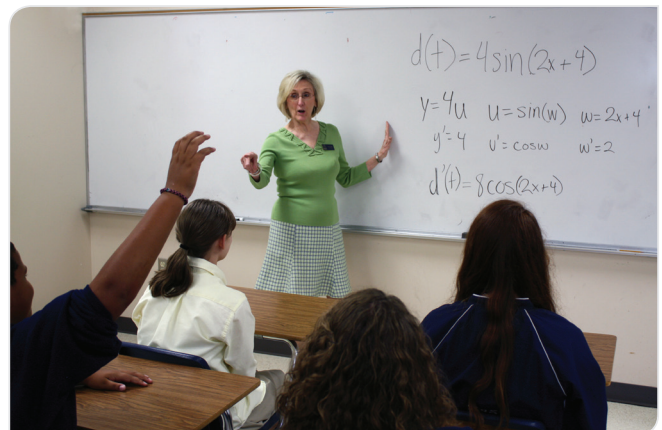 d(t)=4sin(2x+4)
y=4u u=sin(w) w=2x+4
y'=4 u'=cosw w'=2
d'(t)=8cos(2x+4)